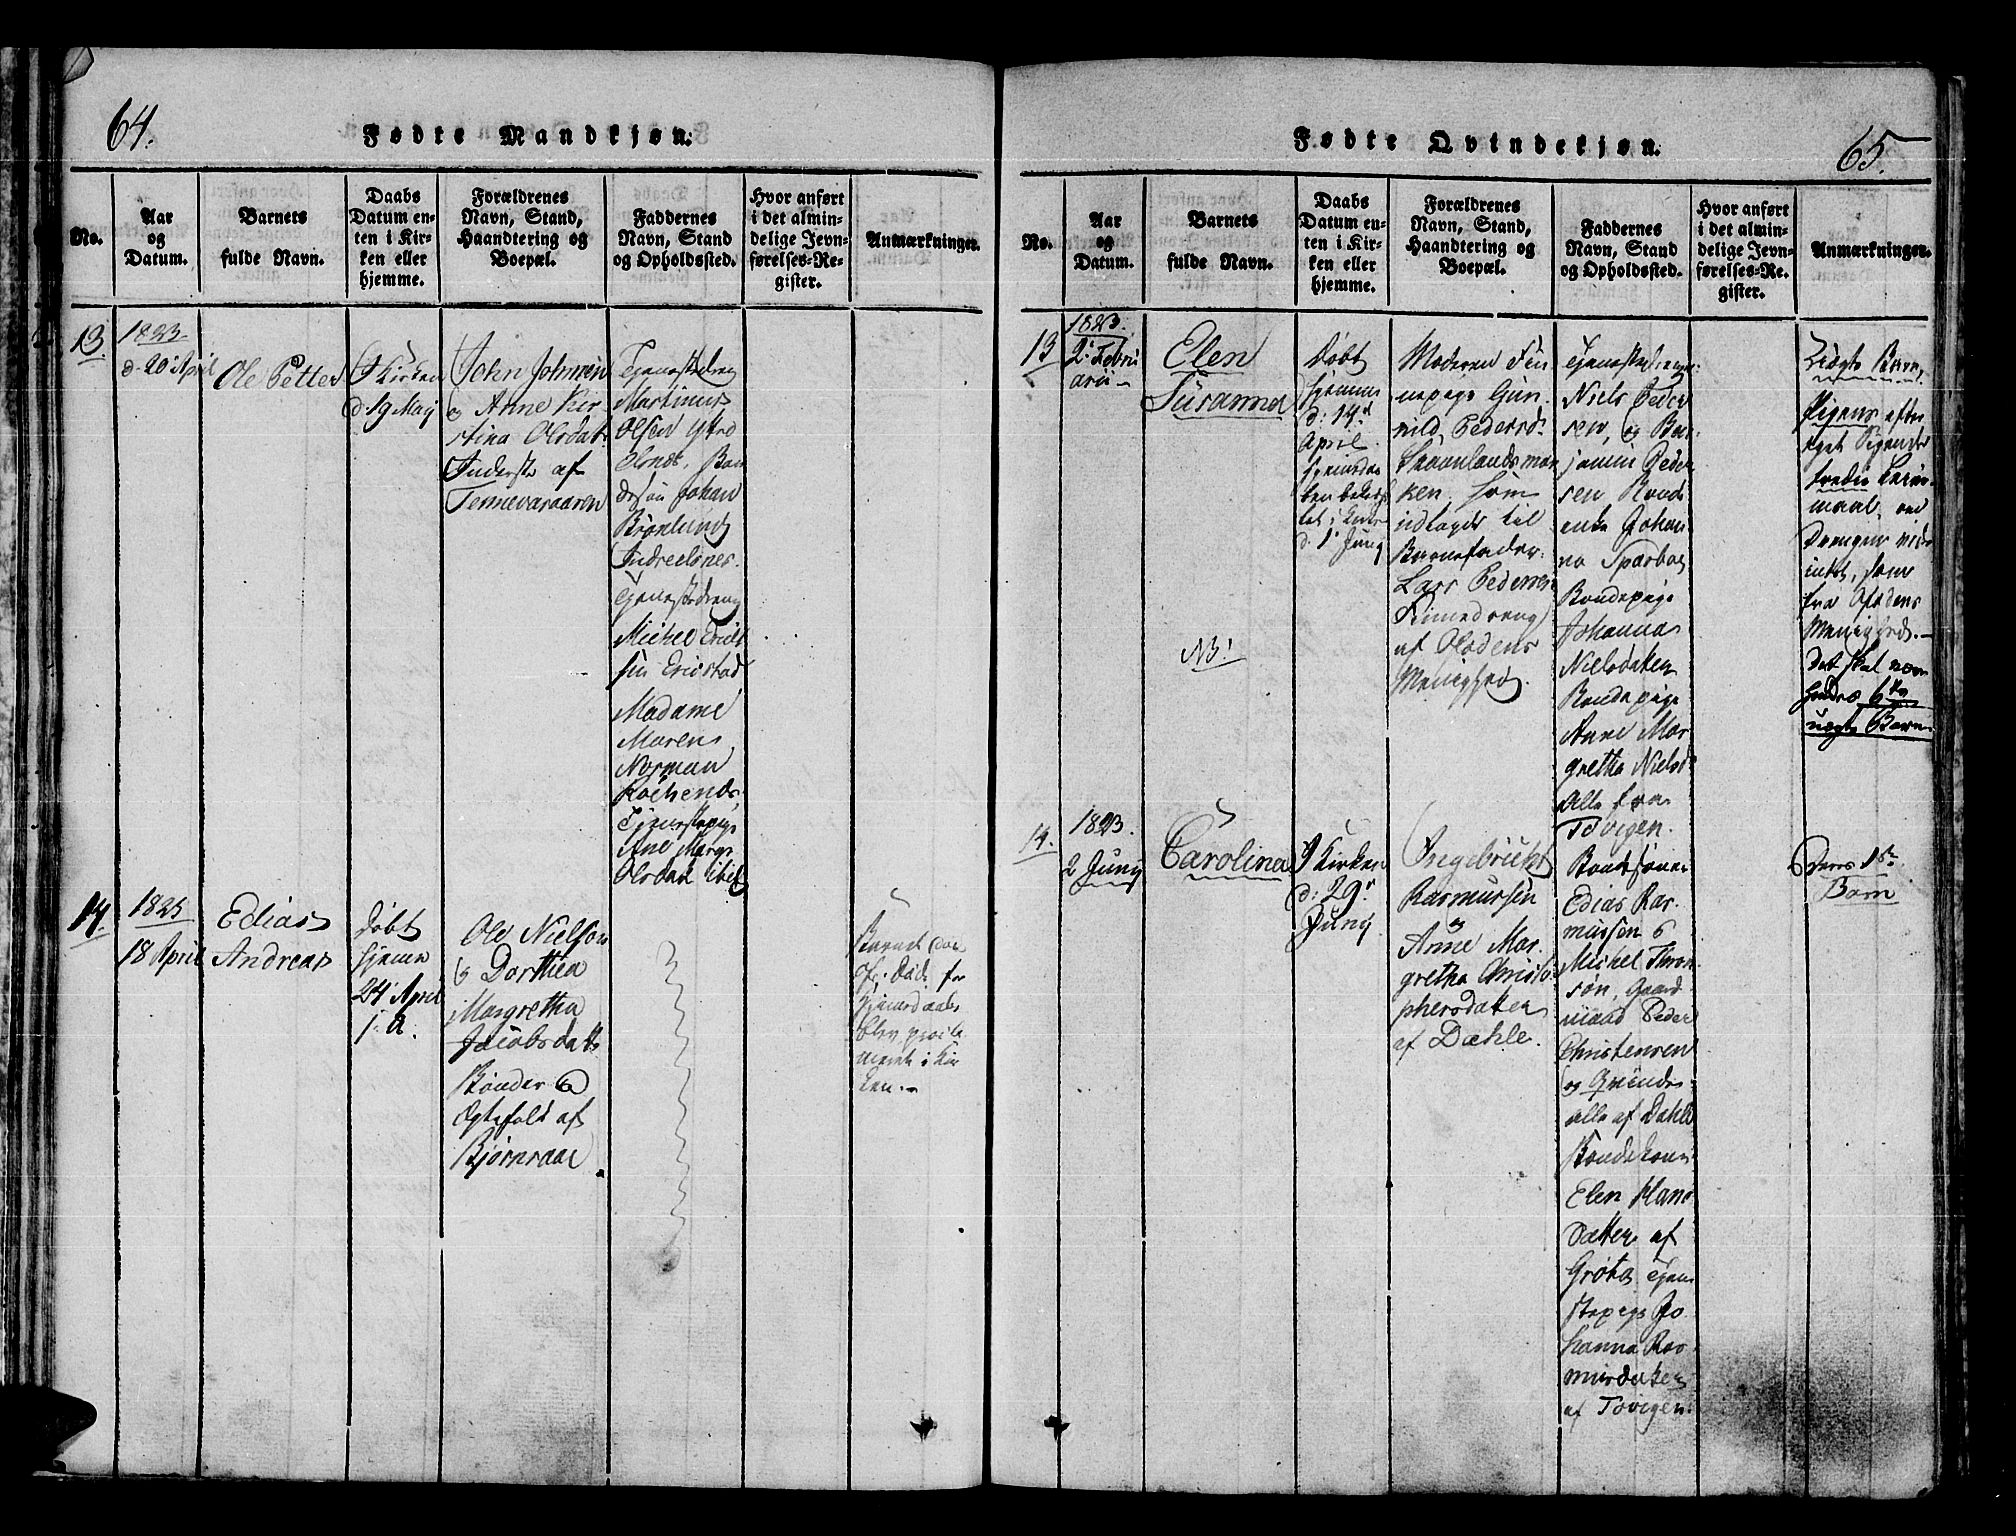 64.
Fødte Mandkjøn.
No.
Aar
og
Datum.
Barnets
fulde Navn.
Daabs
Datum en-
ten i Kir-
ken eller
hjemme.
Forældrenes
Navn, Stand,
Haandtering og
Boepæl.
Faddernes
Navn, Stand
og Opholdssted.
Hvor anført
i det almin-
delige Jevn-
førelses-Re-
gister.
Anmærkninger.
13.
1823
d. 20 April
Ole Petter
I Kirken
d. 19 May
John Johnsen
og Anne Kir
stina Olsdat
Inderste af
Tennevaraaren
Tjenestedreng
Martinus
Olsen Ytre
Elsnæs, Bon
desøn Johan
Brønlund
Indreelsnes.
Tjenestedreng
Michel Erich
sen Ericstad
Madame
Maren
Norman
Tjenestepige
Ane Margr
Olsdat ibid
14.
1823
18 April
Edias
Andreas
Døbt
hjemme
24 April
s. A.
Ole Nielsen
og Dorthea
Margretha
Jacobsdatt
Bønder og
Ægtefolk af
Bjørnraae
Barnet døe
de, Død, før
hjemmedaaben
blev procla
meret i Kir
ken.
65.
Fødte Qvindekjøn.
No.
Aar
og
Datum.
Barnets
fulde Navn.
Daabs
Datum en-
ten i Kir-
ken eller
hjemme.
Forældrenes
Navn, Stand,
Haandtering og
Boepæl.
Faddernes
Navn, Stand
og Opholdssted.
Hvor anført
i det almin-
delige Jevn-
førelses-Re-
gister.
Anmærkninger.
13
1823.
2 Febru
arii
Elen
Susanna
NB!
Døbt
hjemme
d: 14d
April
hjemmedaa
ben bekræf
tet i Kirken
d. 1 Juny
Moderen Fin
nepige Gun
nild Pedersd.
Skaanlandsmar
ken, som
udlagde til
Barnefader
Lars Pedersen
Finnedreng
af Ofodens
Menighed.
Tjenestedrenge
Niels Peder
sen, og Ben
jamin Peder
sen Bonde
enke Johan
na Sparboe
Bondepige
Johanna
Nielsdatter
Bondepige
Anne Mar
gretha Nielsd
Alle fra
Tovigen.
Uægte Barn,
Pigens efter
eget Sigende
tredie Leier-
maal, og
Drengens
som
fra Ofodens
Menighed.
Det skal være
hendes 6te
uægte Barn
14.
1823.
2 Juny
Carolina
I Kirken
d: 29
Juny
Ingebrickt
Rasmussen
Anne Mar
gretha Christo
phersdatter
af Dæhle.
Bondesønner
Edias Ras
mussen og
Michel Thron
søn, Gaard
mand Peder
Christensen
og Qvinde
alle af Dæhle
Bondekone
Elen Hans
Datter af
Grøtta Tjene
stepige Jo
hanna Ras
musdatter
af Tovigen.
Deres 1ste
Barn